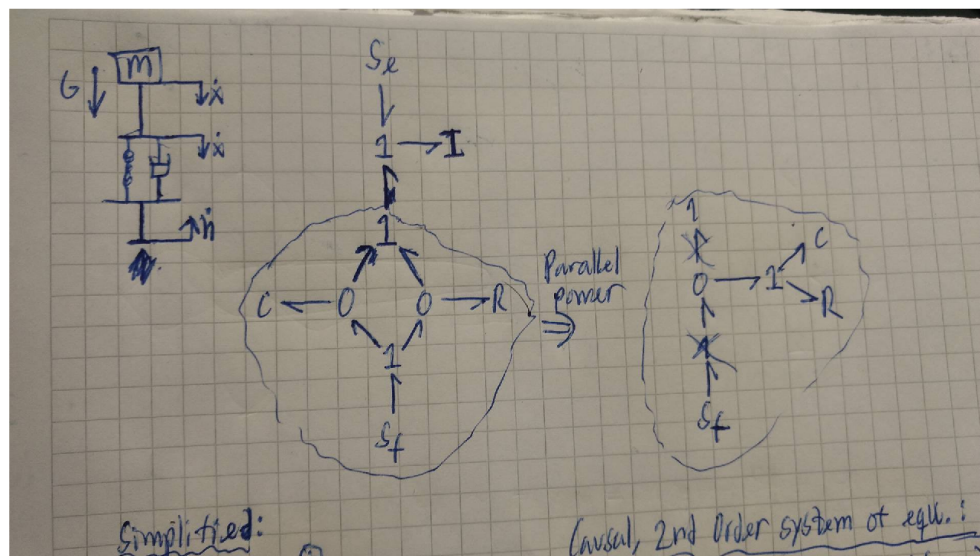 m
G
ẋ
ẋ
ḣ
Se
1 I
1
C 0 0 R
1
Sf
Parallel
power
1
0 1 C
R
Sf
Simplified:
Causal, 2nd Order system of equ.: